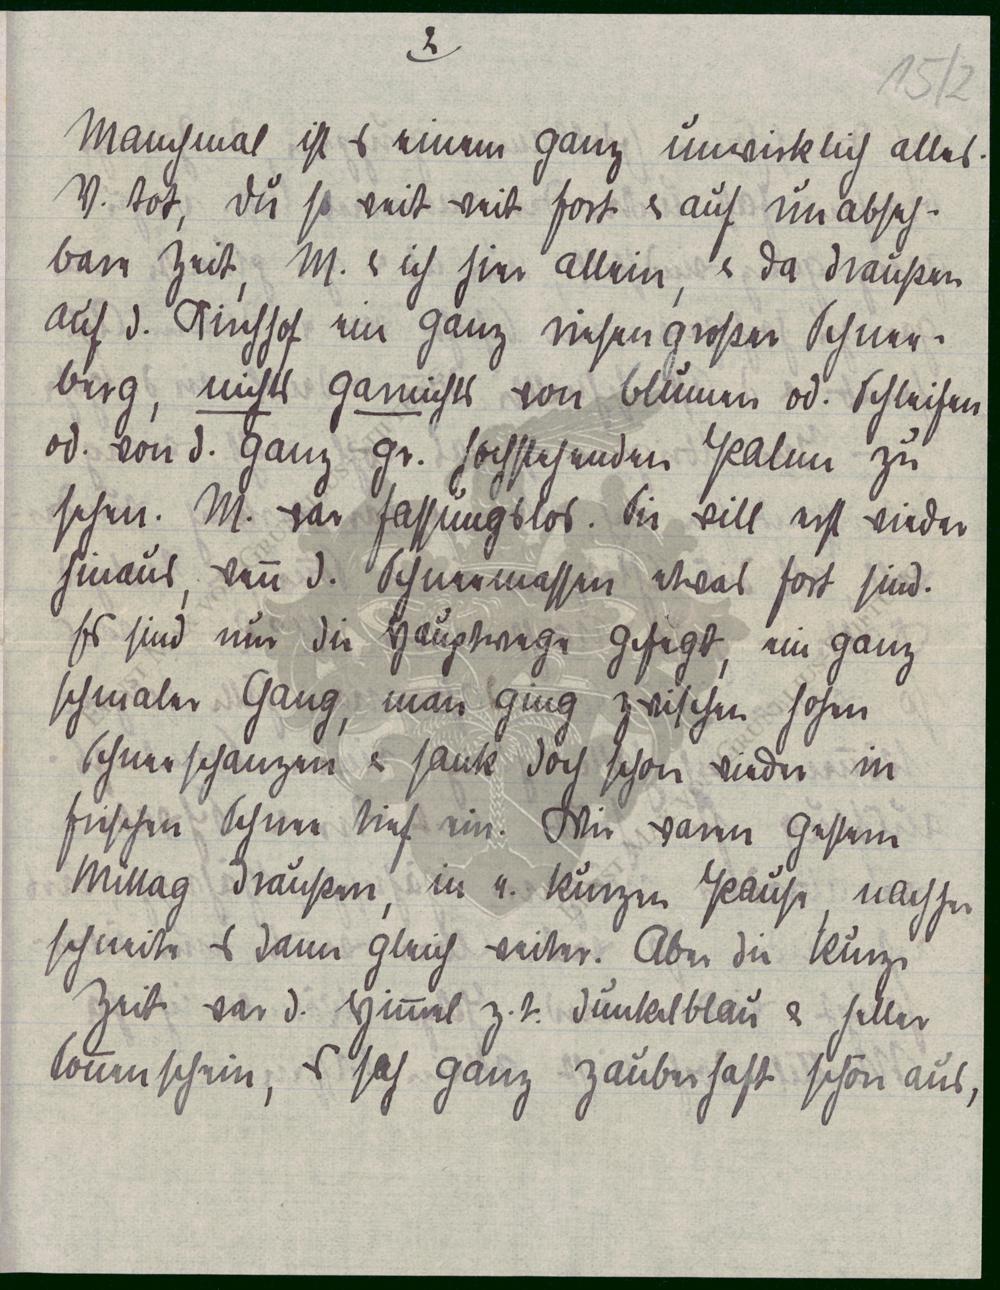 2
15/2
Manchmal ist es einem ganz unwirklich alles.
V. tot, du so weit weit fort & auf unabseh-
bare Zeit, M. & ich hier allein, & da draußen
auf d. Kirchhof ein ganz riesengroßer Schnee-
berg, nichts garnichts von Blumen od. Schleifen
od. von d. ganz gr. hochstehenden Palme zu
sehen. M. war fassungslos. Sie will erst wieder
hinaus, wen̄ d. Schneemassen etwas fort sind.
Es sind nur die Hauptwege gefegt, ein ganz
schmaler Gang, man ging zwischen hohen
Schneeschanzen & sank doch schon wieder in
frischen Schnee tief ein. Wir waren gestern
Mittag draußen, in e. kurzen Pause, nachher
schneite es dann gleich weiter. Aber die kurze
Zeit war d. Him̄el z.t. dunkelblau & heller
Son̄enschein, es sah ganz zauberhaft schön aus,